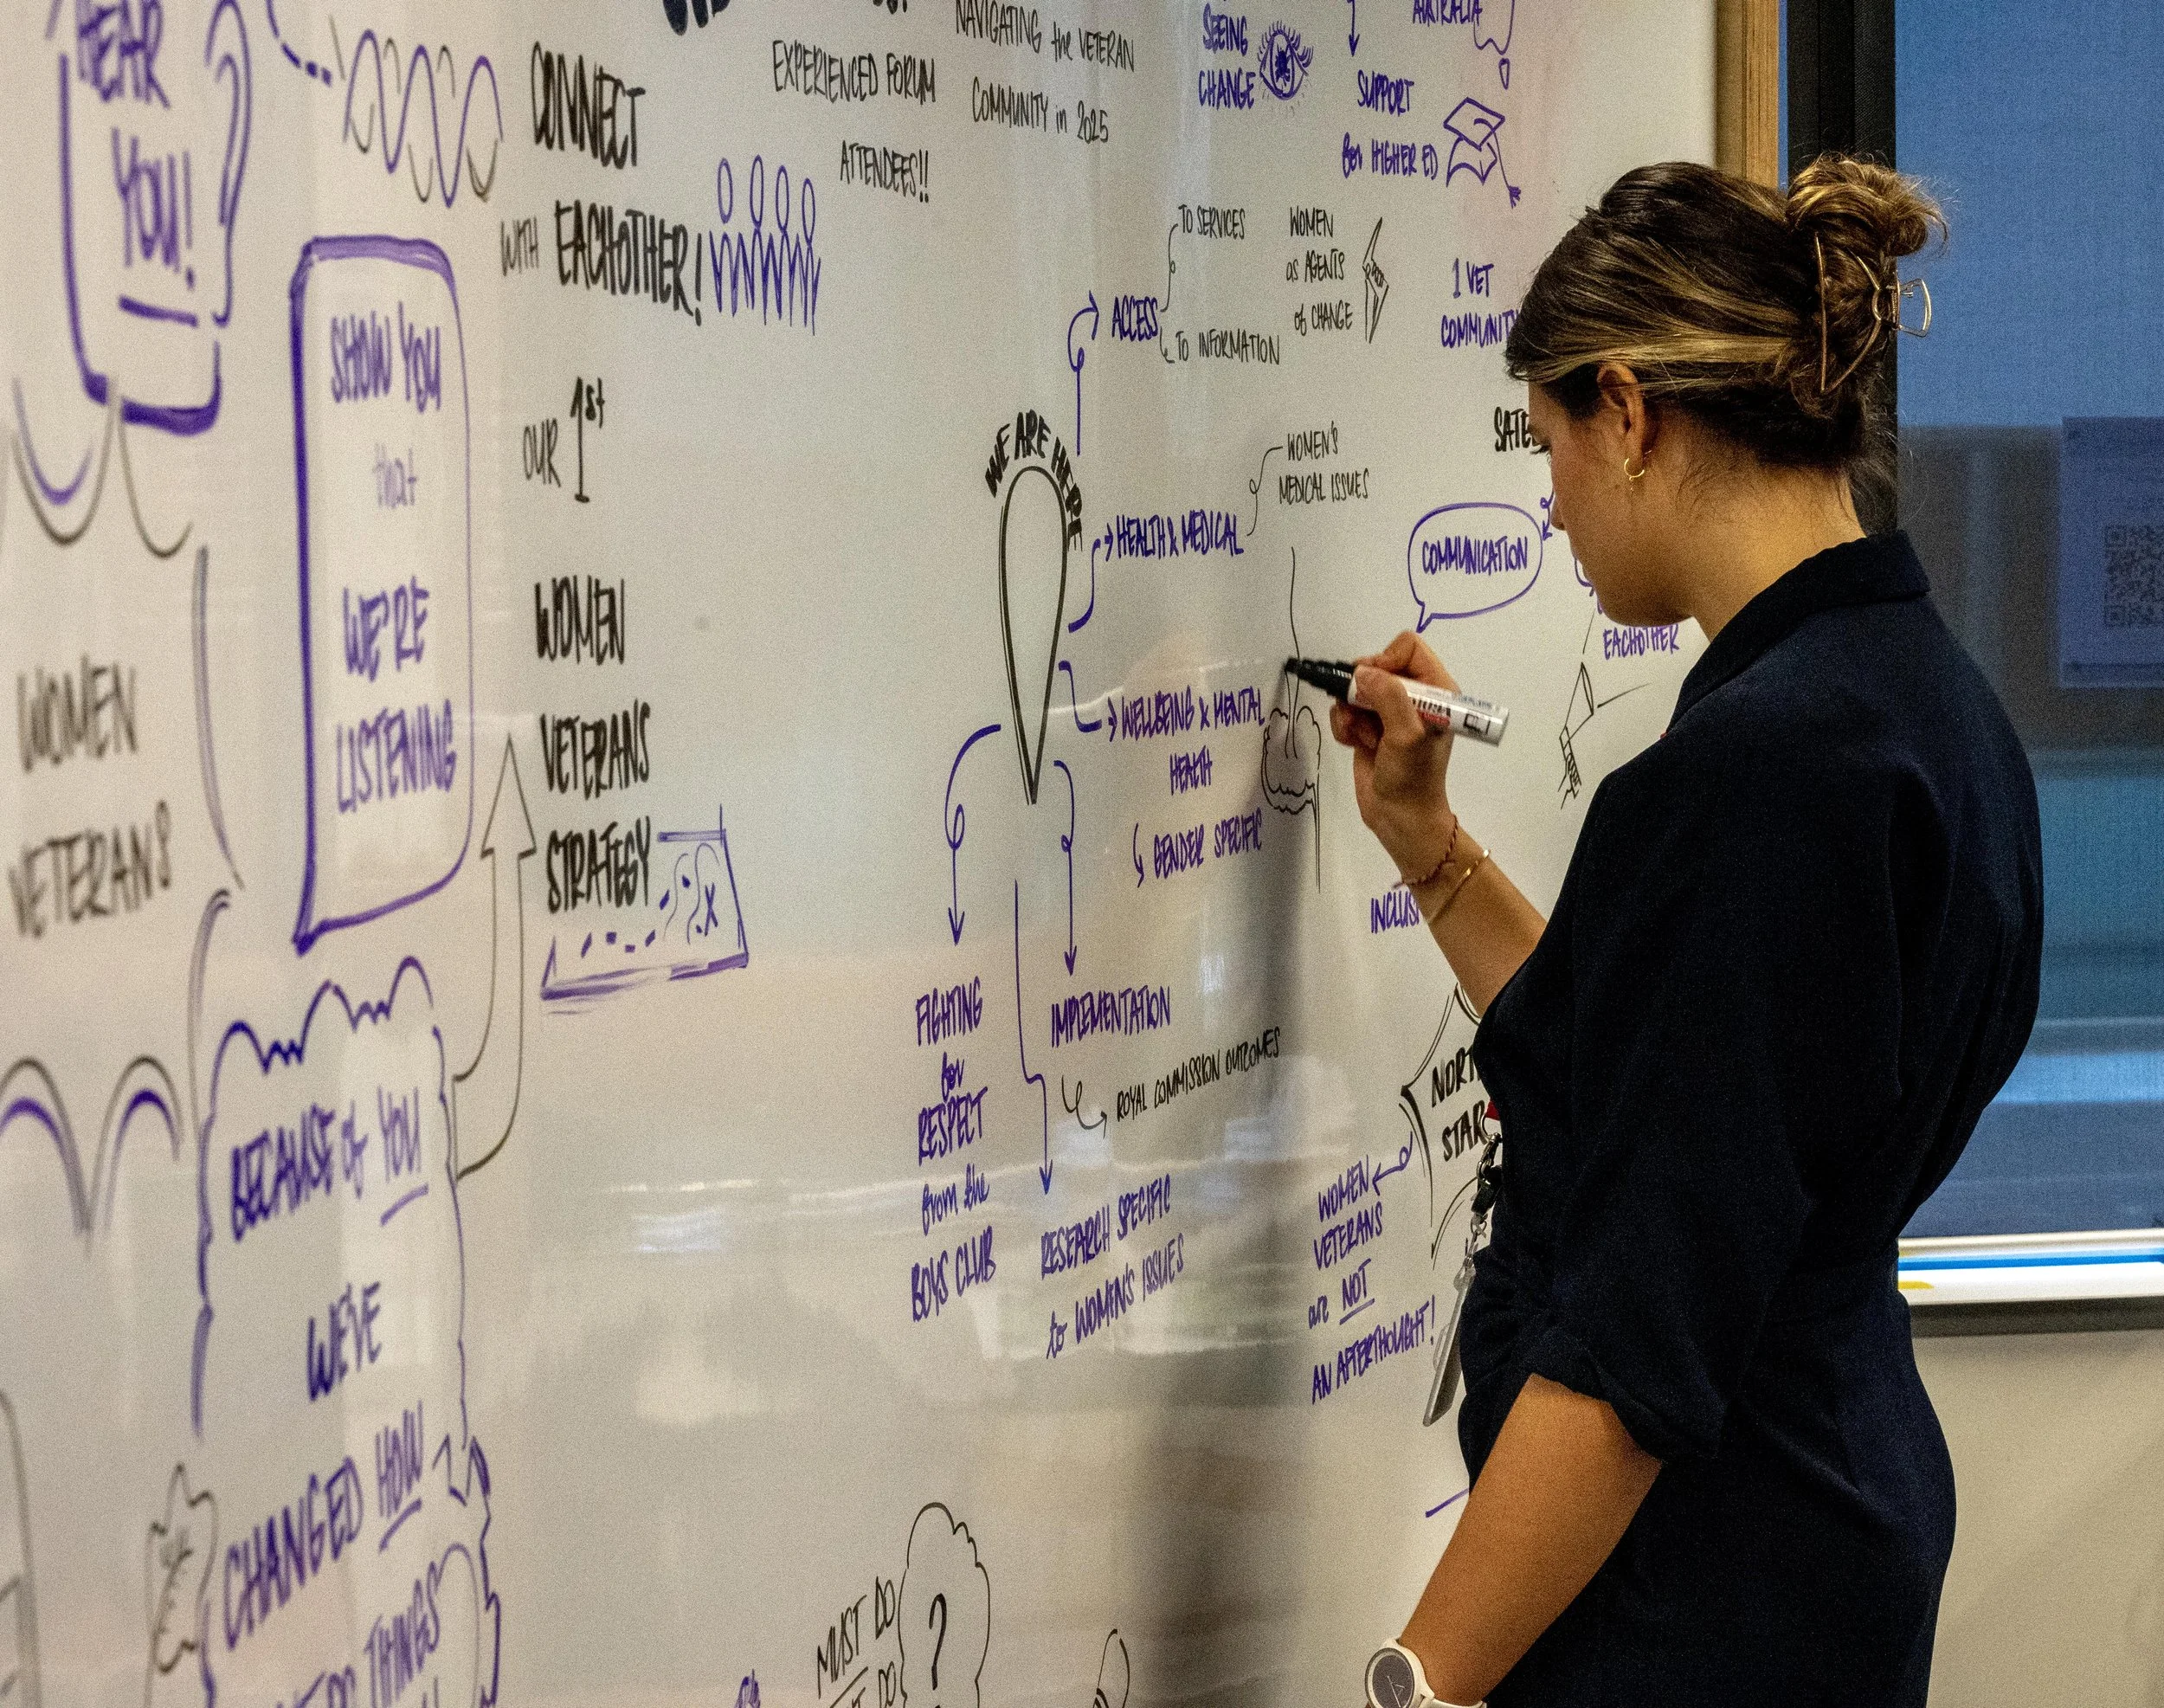 HEAR
YOU!
SHOW YOU
that
WE'RE
LISTENING
WOMEN
VETERANS
BECAUSE of YOU
WE'VE
CHANGED HOW
THINGS
CONNECT
WITH EACHOTHER!
OUR 1st
WOMEN
VETERANS
STRATEGY
X
EXPERIENCED FORUM
ATTENDEES!!
NAVIGATING the VETERAN
COMMUNITY in 2025
SEEING
CHANGE
AUSTRALIA
SUPPORT
for HIGHER ED
ACCESS
TO SERVICES
TO INFORMATION
WOMEN
as AGENTS
of CHANGE
1 VET
COMMUNITY
WE ARE HERE
HEALTH & MEDICAL
WOMEN'S
MEDICAL ISSUES
COMMUNICATION
EACHOTHER
WELLBEING & MENTAL
HEALTH
GENDER SPECIFIC
FIGHTING
for
RESPECT
from the
BOYS CLUB
IMPLEMENTATION
ROYAL COMMISSION OUTCOMES
RESEARCH SPECIFIC
to WOMEN'S ISSUES
NORTH
STAR
WOMEN
VETERANS
are NOT
AN AFTERTHOUGHT!
MUST DO
DO
?